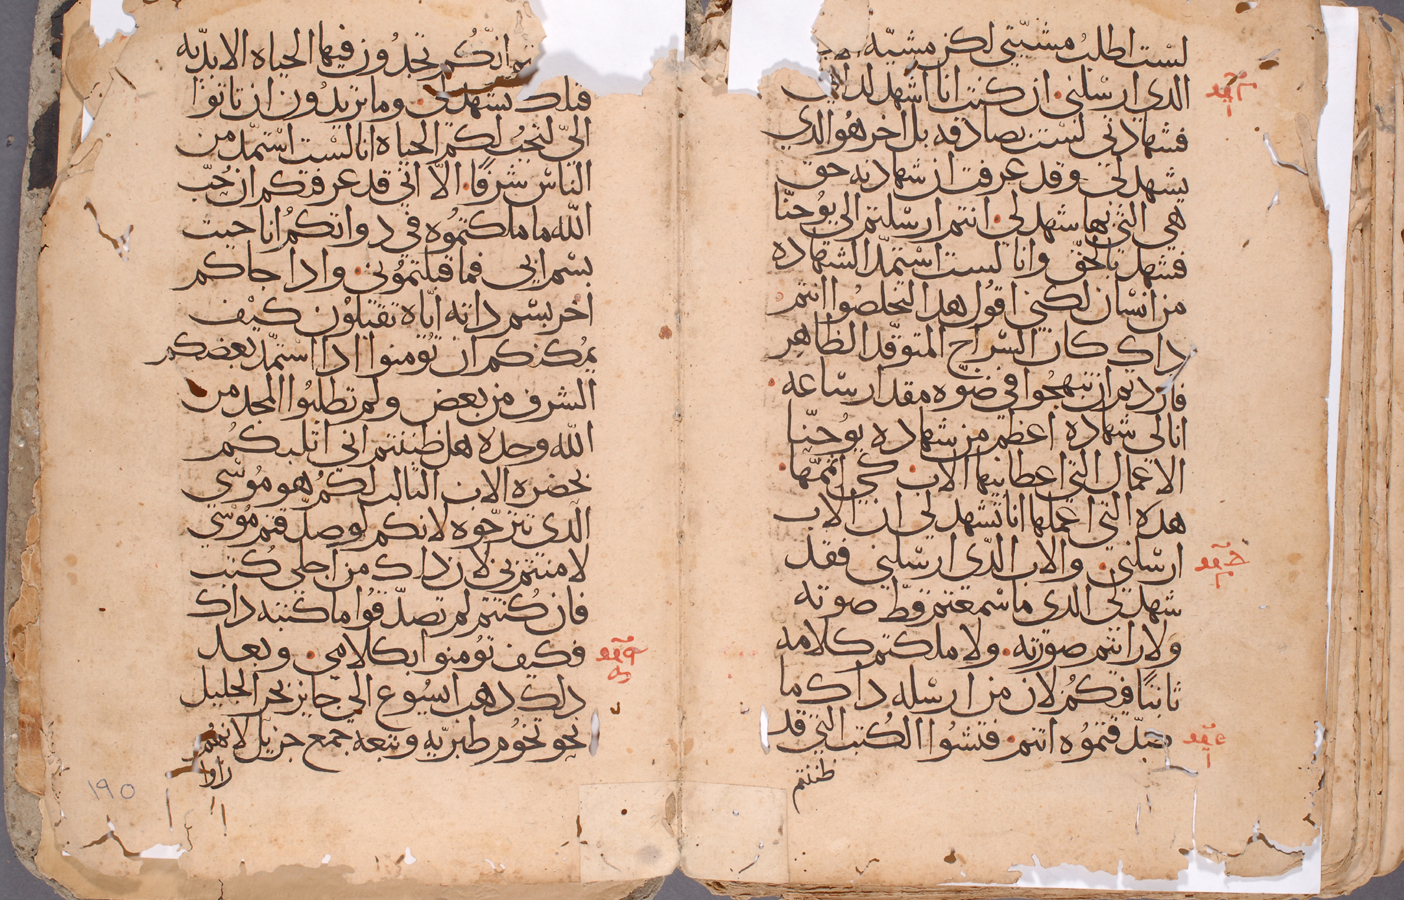 لست اطلب مشيتي لكن مشيه
الدي ارسلني. ان كنت انا اشهد لداتي
فشهادتي لست بصادقه بل اخر هو الدي
يشهد لي. وقد عرفت ان شهادته حق
هي التي بها شهد لي. انتم ارسلتم الى يوحنا
فشهد بالحق وانا لست استمد الشهاده
من انسان لكني اقول هدا لتخلصوا انتم
داك كان السراج المتوقد الظاهر
فاردتم ان تبهجوا في ضوه مقدار ساعه.
انا لي شهاده اعظم من شهاده يوحنا
الاعمال التي اعطانيها الاب. كي اتممها.
هده التي اعملها انا تشهد لي ان الاب
ارسلني. والاب الدي ارسلني فقد
شهد لي الدي ما سمعتم قط صوته
ولا راتتم صورته. ولا ملكتم كلامه
ثابتا فيكم لان من ارسله داك ما
صدقتموه انتم. فتشوا الكتب التي قد
ظننتم
انكم تجدون فيها الحياه الابديه
فتلك تشهد لي. وما تريدون ان تاتوا
الي لتجب لكم الحياه انا لست استمد من
الناس شرفا. الا اني قد عرفتكم ان حب
الله ما ملكتموه في دواتكم انا جيت
بسم ابي فما قبلتموني. وادا جاكم
اخر بسم داته اياه تقبلون كيف
يمكنكم ان تومنوا ادا استمد بعضكم
الشرف من بعض ولم تطلبوا المجد من
الله وحده هل ظننتم اني اثلبكم
بحضره الاب الثالب لكم هو موسي
الدي تترجوه لانكم لو صدقتم موسي
لامنتم بي لان داك من اجلي كتب
فان كنتم لم تصدقوا ما كتبه داك
فكيف تومنوا بكلامي. وبعد
دلك دهب ايسوع الي جايز بحر الجليل
نحو تخوم طبريه وتبعه جمع جزيل لانهم
راوا
١٩٥